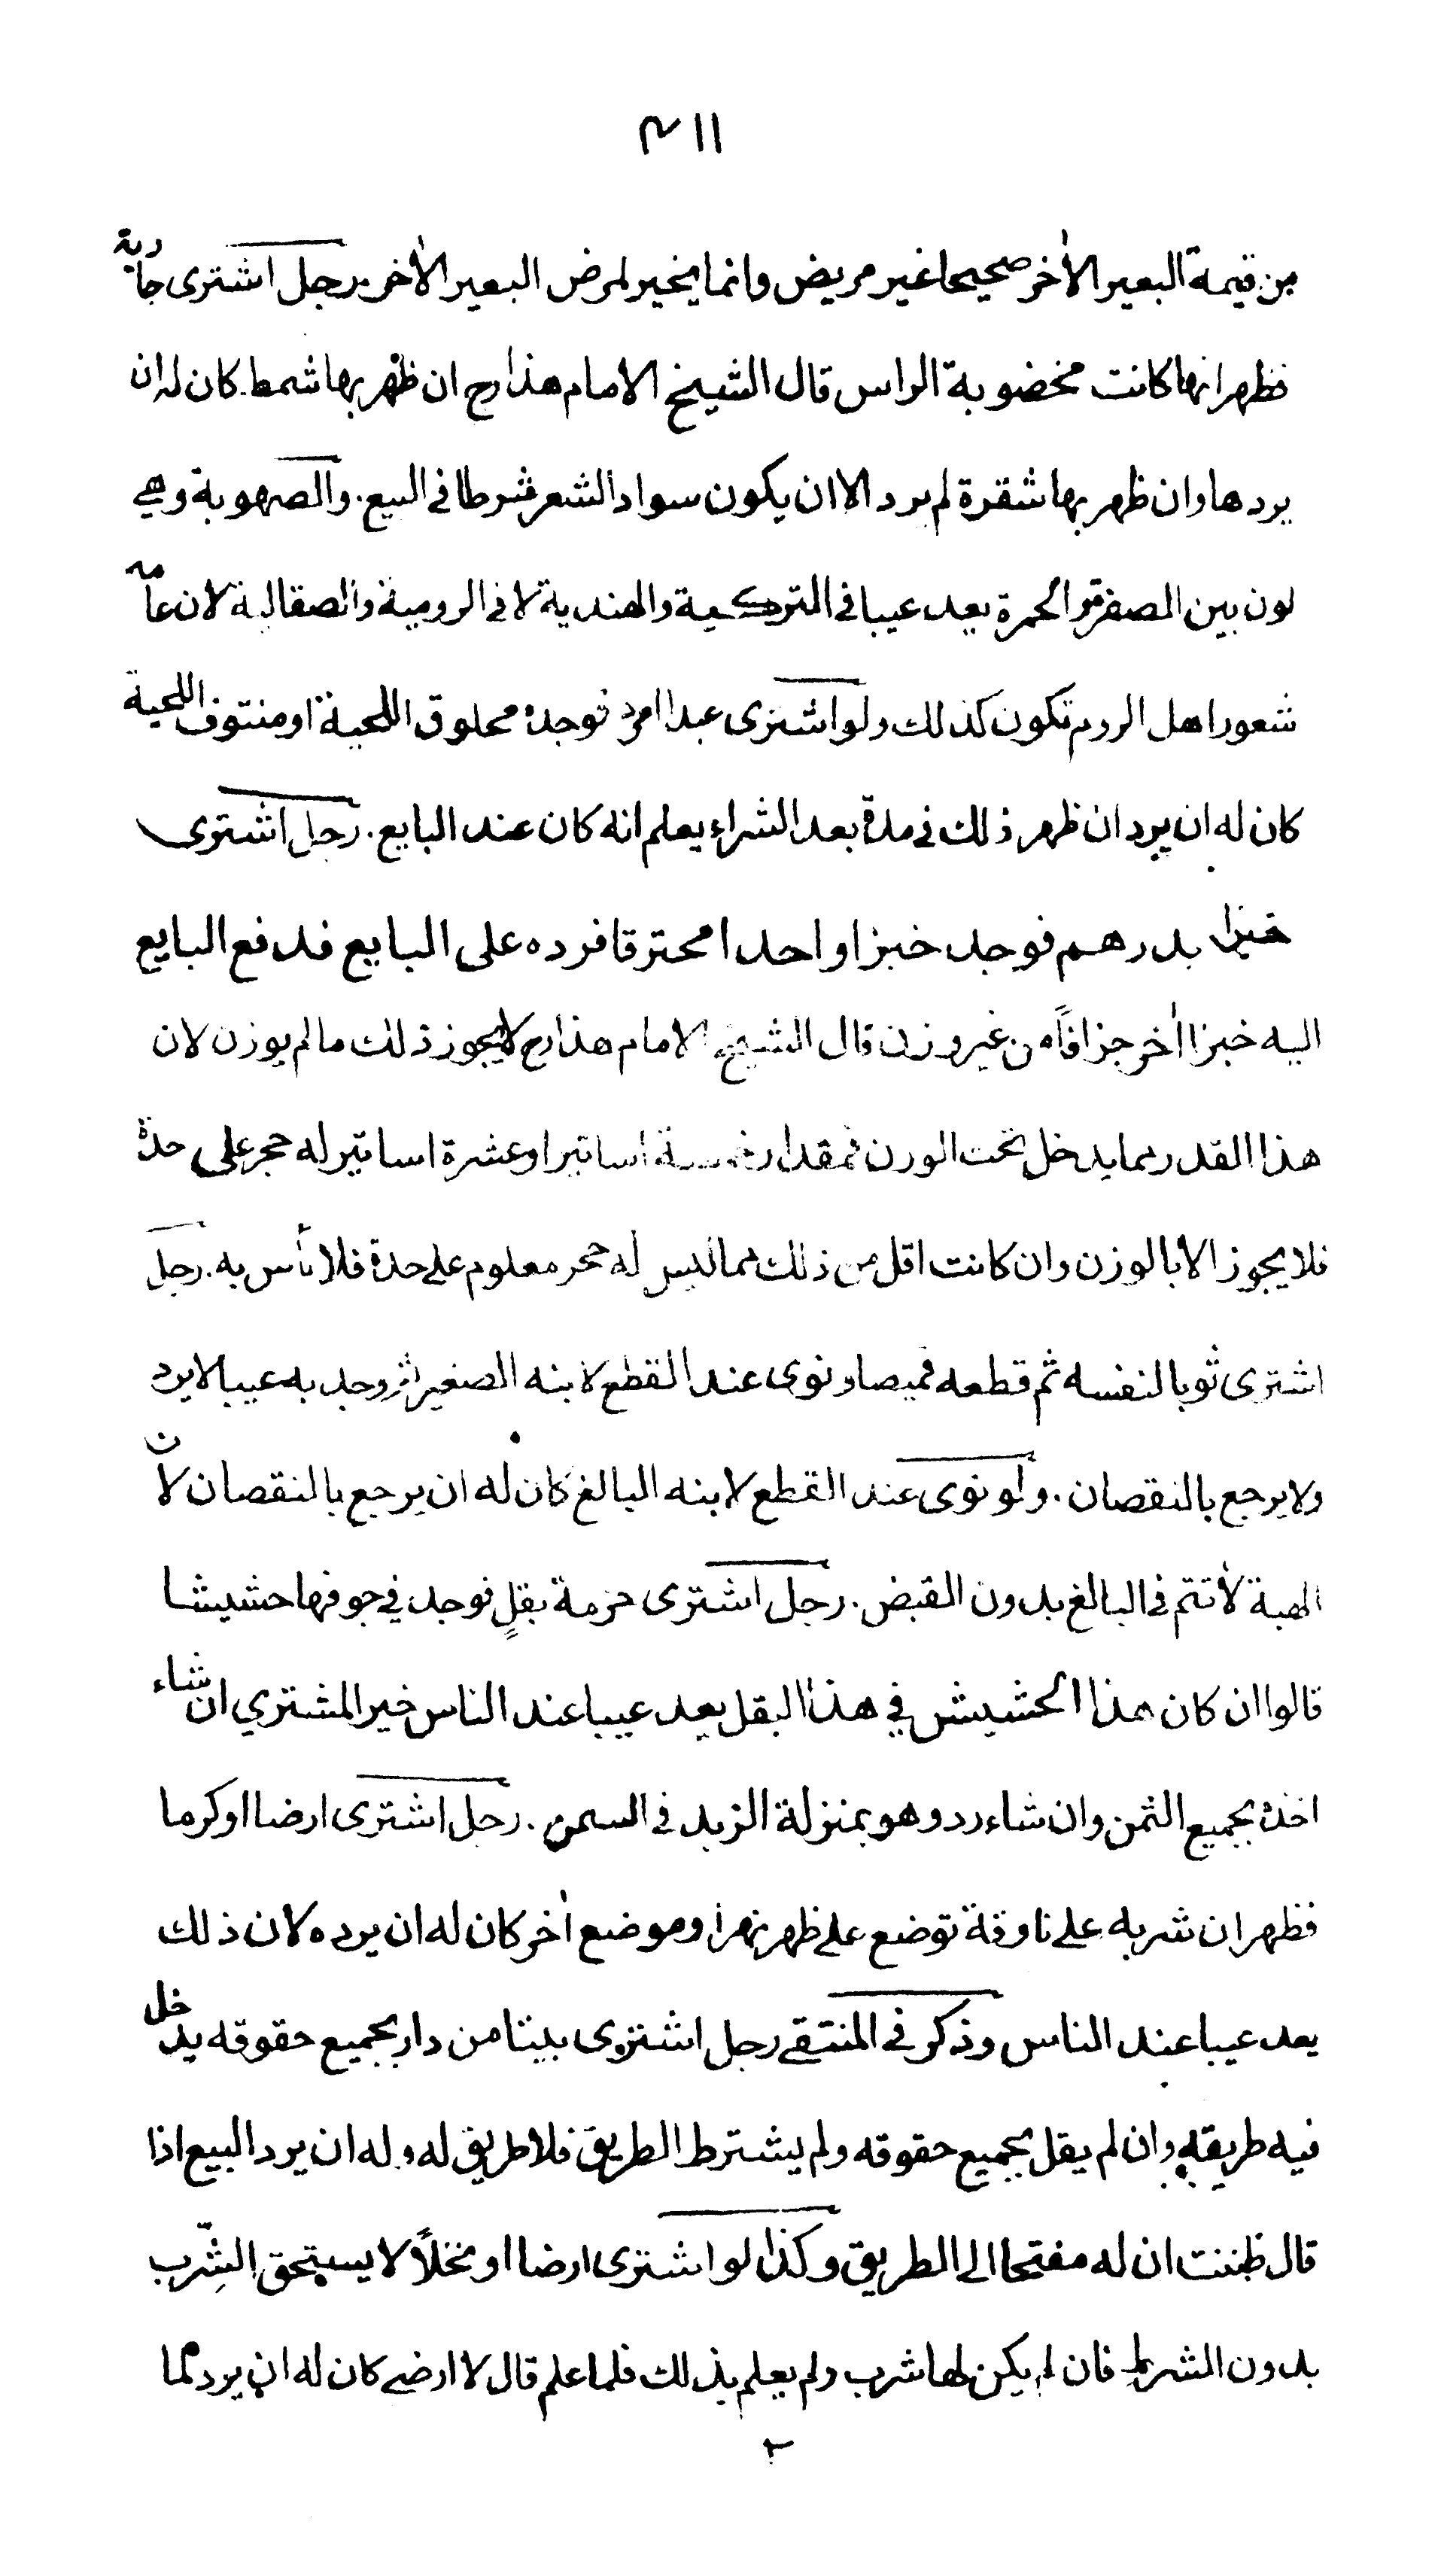 ٣١١
من قيمة البعير الآخر صحيحا غير مريض وانما يخير لمرض البعير الآخر. رجل اشترى جارية
فظهر انها كانت مخضوبة الراس قال الشيخ الامام هذا رح ان ظهر بها شمط كان له ان
يردها وان ظهر بها شقرة لم يرد الا ان يكون سواد الشعر شرطا في البيع. والصهوبة وهي
لون بين الصفرة والحمرة يعد عيبا في التركية والهندية لا في الرومية والصقالبة لان عامة
شعور اهل الروم تكون كذلك ولو اشترى عبدا امرد فوجده محلوق اللحية او منتوف اللحية
كان له ان يرد ان ظهر ذلك في مدة بعد الشراء يعلم انه كان عند البايع. رجل اشترى
خبزا بدرهم فوجد خبزا واحدا محترقا فرده على البايع فدفع البايع
اليه خبزا آخر جزافاً من غير وزن قال الشيخ الامام هذا رح لا يجوز ذلك ما لم يوزن لان
هذا القدر مما يدخل تحت الوزن فمقدار خمسة اساتير او عشرة اساتير له حجر على حدة
فلا يجوز الا بالوزن وان كانت اقل من ذلك مما ليس له حجر معلوم على حدة فلا بأس به. رجل
اشترى ثوبا لنفسه ثم قطعه قميصا ونوى عند القطع لابنه الصغير ثم وجد به عيبا لا يرد
ولا يرجع بالنقصان. ولو نوى عند القطع لابنه البالغ كان له ان يرجع بالنقصان لان
الهبة لا تتم في البالغ بدون القبض. رجل اشترى حزمة بقلٍ فوجد في جوفها حشيشا
قالوا ان كان هذا الحشيش في هذا البقل يعد عيبا عند الناس خير المشتري ان شاء
اخذه بجميع الثمن وان شاء رد وهو بمنزلة الزبد في السمن. رجل اشترى ارضا او كرما
فظهر ان شربه على ناوقة توضع على ظهر نهر او موضع آخر كان له ان يرده لان ذلك
يعد عيبا عند الناس وذكر في المنتقى رجل اشترى بيتا من دار بجميع حقوقه يدخل
فيه طريقه وان لم يقل بجميع حقوقه ولم يشترط الطريق فلا طريق له وله ان يرد البيع اذا
قال ظننت ان له مفتحا الى الطريق وكذا لو اشترى ارضا او نخلاً لا يستحق الشِّرب
بدون الشرط فان لم يكن لها شرب ولم يعلم بذلك فلما علم قال لا ارضى كان له ان يرد كما
٢